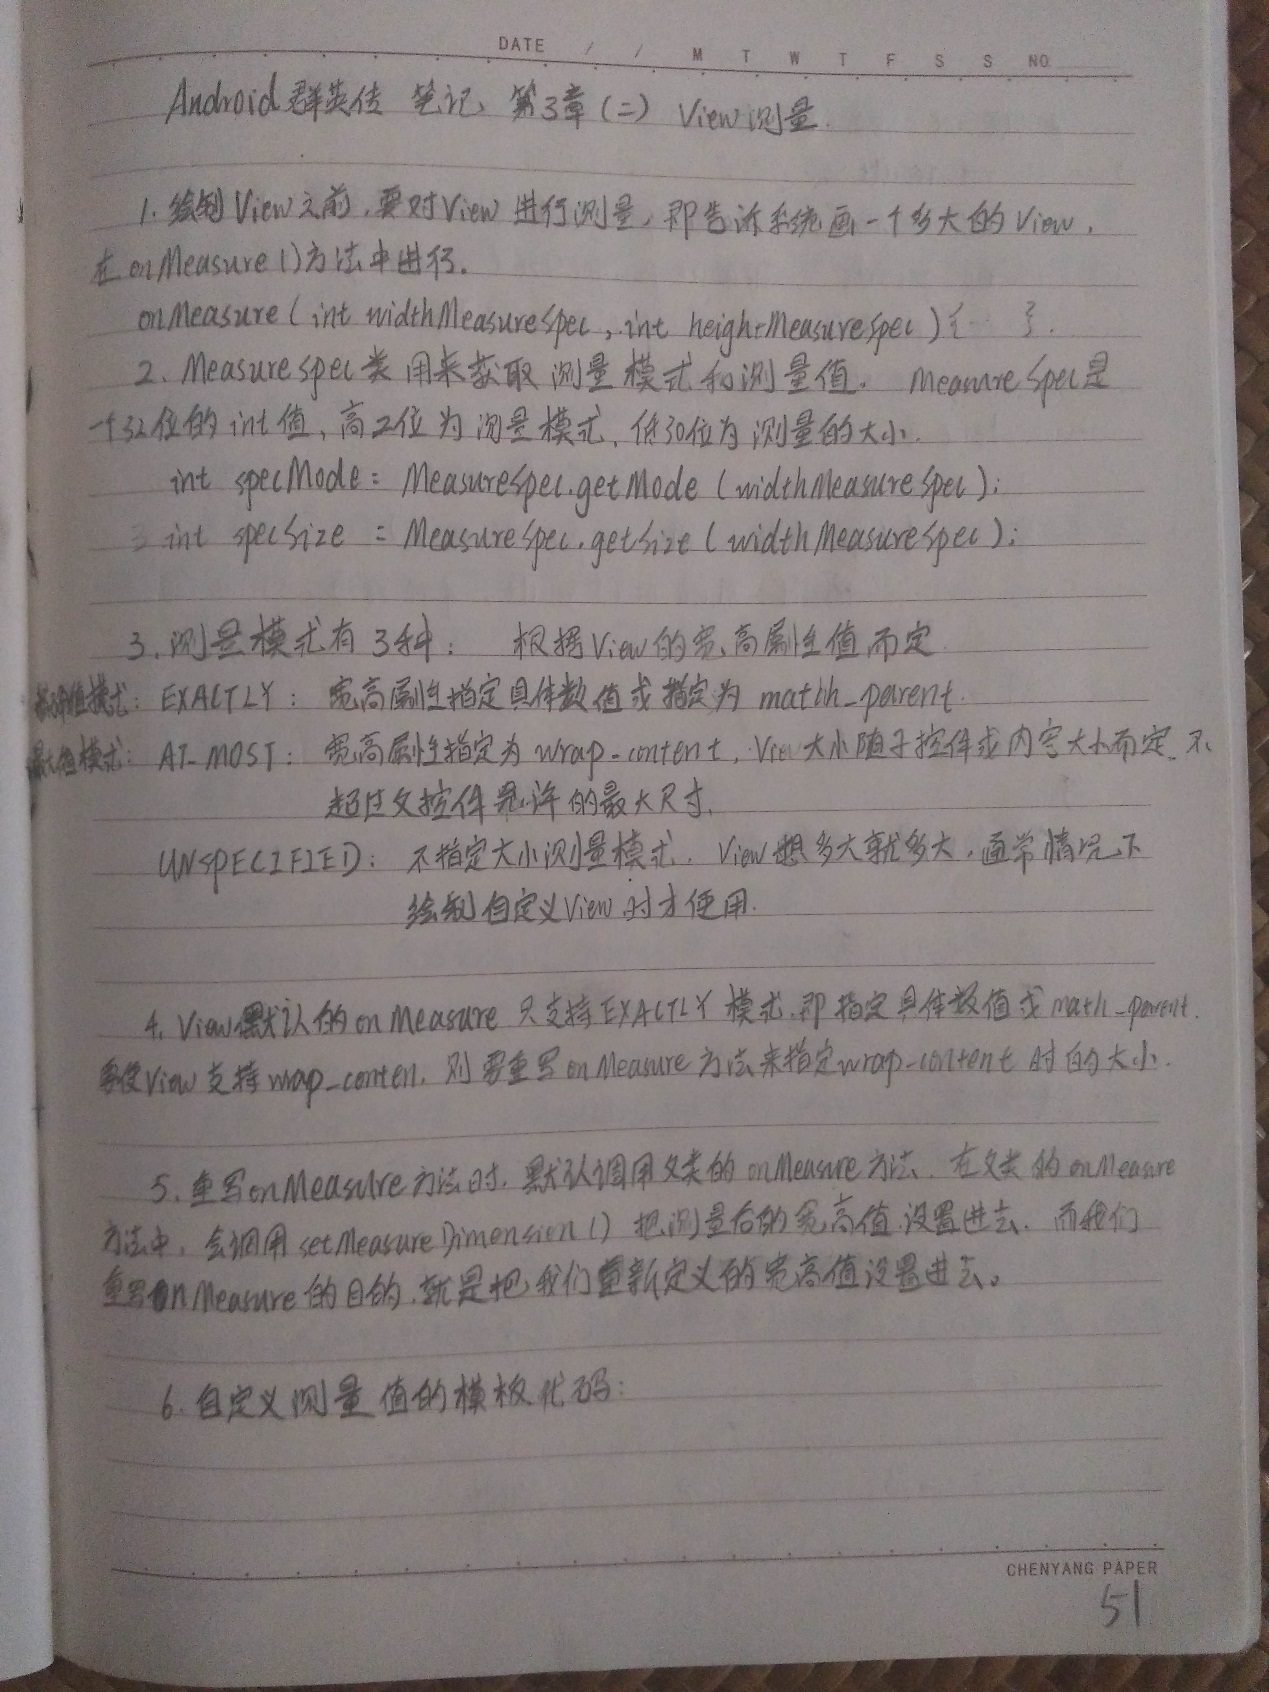 DATE / / M T W T F S S NO.
Android 群英传 笔记 第3章(二) View测量.
1. 绘制View之前,要对View进行测量,即告诉系统画一个多大的View,
在onMeasure()方法中进行。
onMeasure(int widthMeasureSpec, int heightMeasureSpec){… }.
2. MeasureSpec类用来获取测量模式和测量值. MeasureSpec是
一个32位的int值,高2位为测量模式,低30位为测量的大小.
int specMode = MeasureSpec.getMode(widthMeasureSpec);
int specSize = MeasureSpec.getSize(widthMeasureSpec);
3. 测量模式有3种: 根据View的宽,高属性值而定
值模式: EXACTLY: 宽高属性指定具体数值或指定为 math_parent.
最大值模式: AT_MOST: 宽高属性指定为wrap_content, View大小随子控件或内容大小而定,不
超过父控件允许的最大尺寸.
UNSPECIFIED: 不指定大小测量模式. View想多大就多大,通常情况下
绘制自定义View时才使用.
4. View默认的onMeasure只支持EXACTLY模式,即指定具体数值或math_parent.
要使View支持wrap_conten, 则需重写onMeasure方法来指定wrap_content时的大小.
5. 重写onMeasure方法时,默认调用父类的onMeasure方法,在父类的onMeasure
方法中,会调用setMeasureDimension()把测量后的宽高值设置进去,而我们
重写onMeasure的目的,就是把我们重新定义的宽高值设置进去。
6. 自定义测量值的模板代码:
CHENYANG PAPER
51